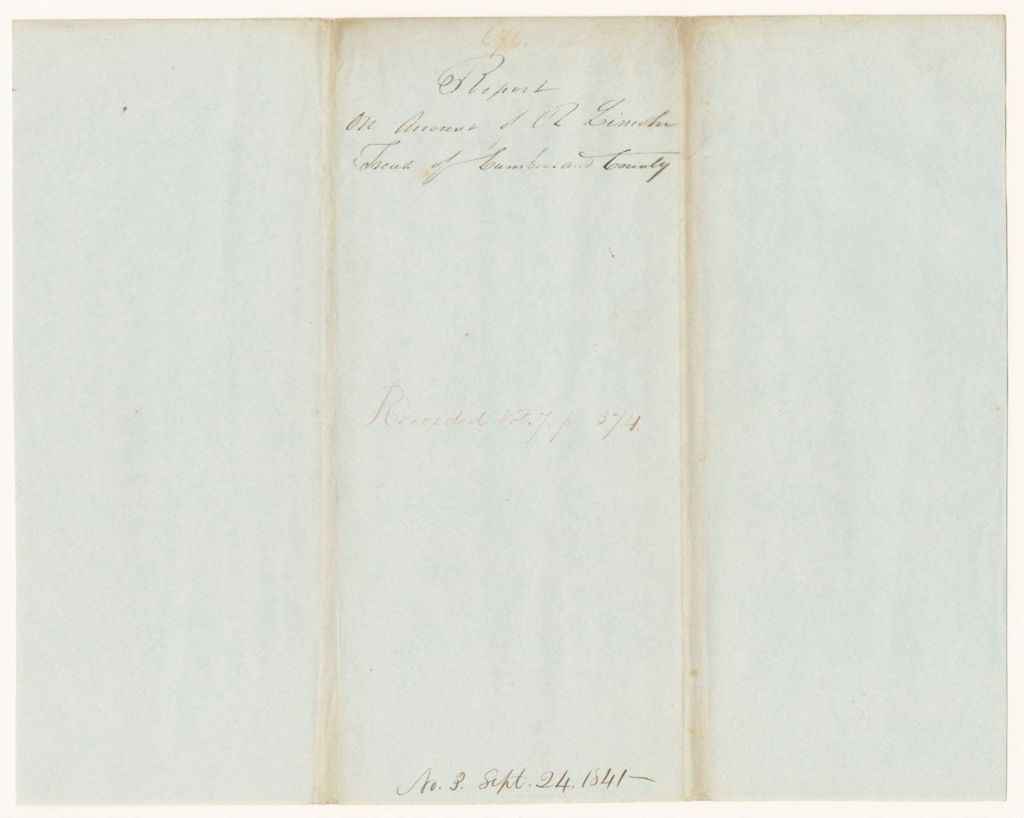 Report
On Account of R Lincoln
Treas of Cumberland County
Recorded Vol. 7. p. 374.
No. 3. Sept. 24. 1841—